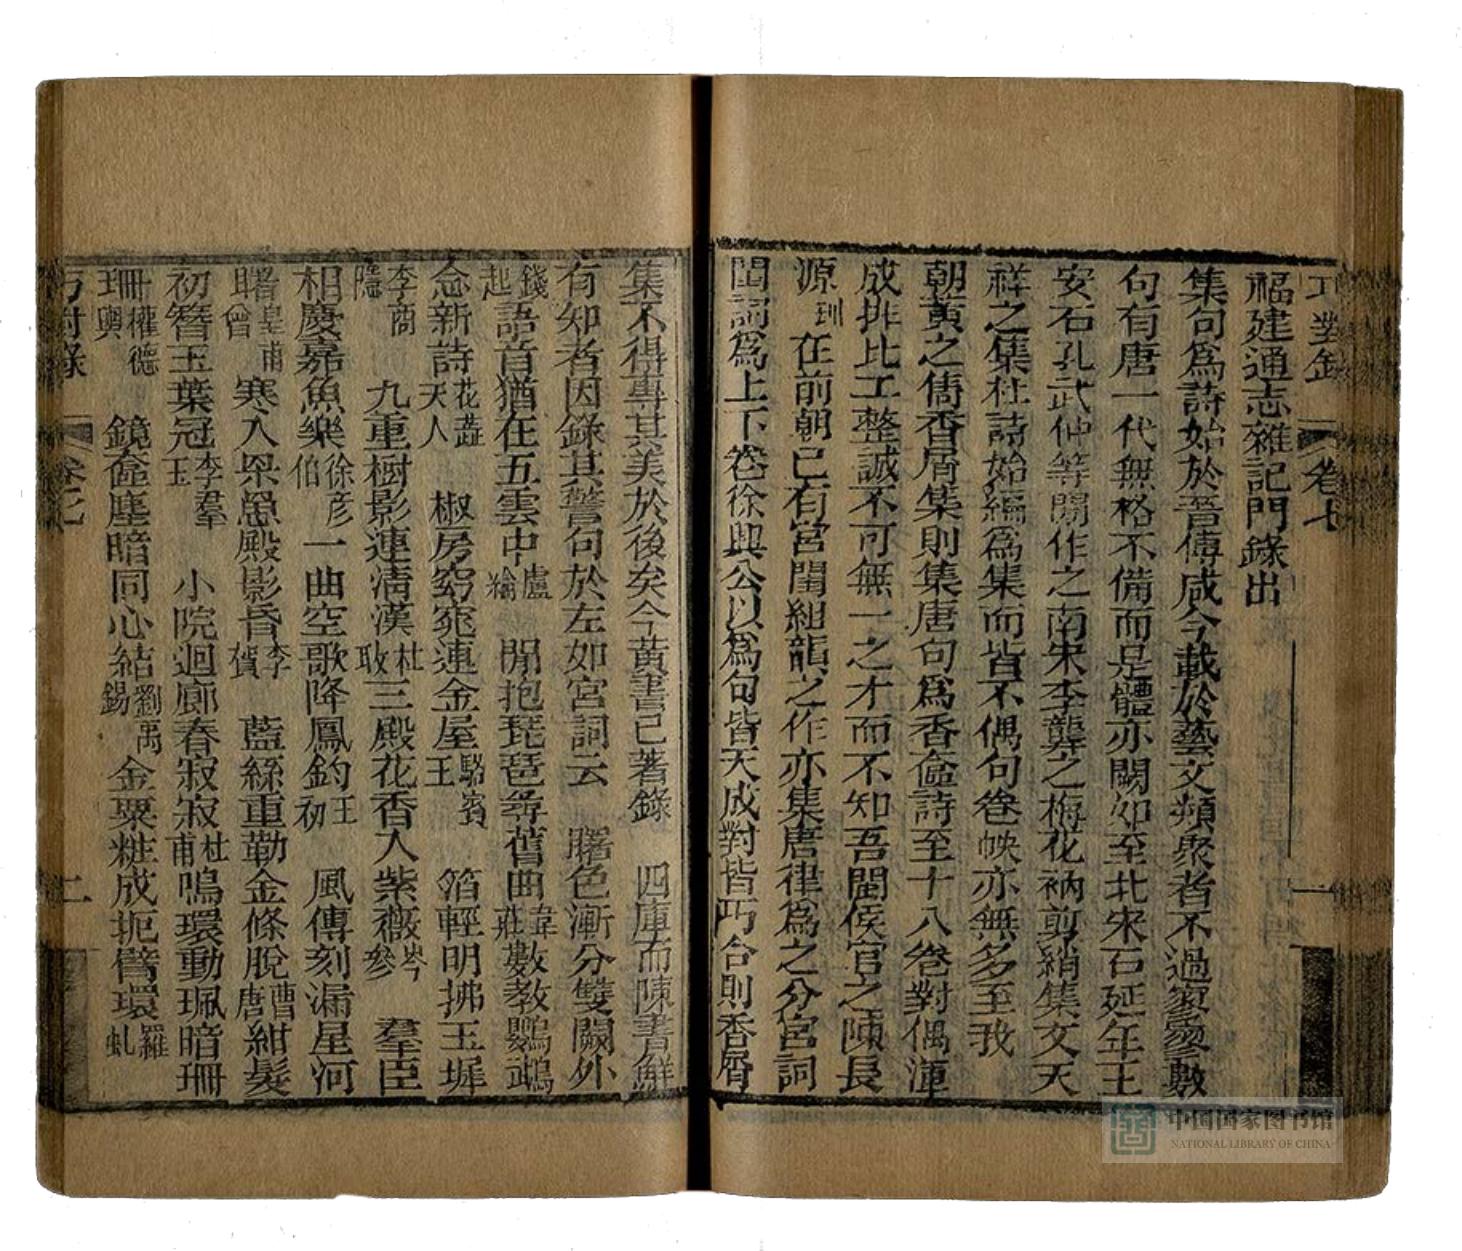 巧對錄 卷七 一
福建通志雜記門錄出
集句爲詩始於晉傅咸今載於藝文類聚者不過寥寥數
句有唐一代無格不備而是體亦闕如至北宋石延年王
安石孔武仲等間作之南宋李龏之梅花衲剪綃集文天
祥之集杜詩始編爲集而皆不偶句卷帙亦無多至我
朝黃之雋香屑集則集唐句爲香奩詩至十八卷對偶渾
成排比工整誠不可無一之才而不知吾閩侯官之陳長
源圳在前朝已有宮閨組韻之作亦集唐律爲之分宮詞
閨詞爲上下卷徐興公以爲句皆天成對皆巧合則香屑
集不得專其美於後矣今黃書已著錄 四庫而陳書鮮
有知者因錄其警句於左如宮詞云 曙色漸分雙闕外
錢起語音猶在五雲中盧綸 閒抱琵琶尋舊曲韋莊數教鸚鵡
念新詩花蕋天人 椒房窈窕連金屋駱賓王 箔輕明拂玉墀
李商隱 九重樹影連淸漢杜牧三殿花香入紫薇岑參 羣臣
相慶嘉魚樂徐彥伯一曲空歌降鳳鈞王初 風傳刻漏星河
曙皇甫曾 寒入罘罳殿影昏李賀 藍絲重勒金條脫曹唐紺髮
初簪玉葉冠李羣玉 小院迴廊春寂寂杜甫鳴環動珮暗珊
珊權德輿 鏡奩塵暗同心結劉禹錫 金粟粧成扼臂環羅虬
巧對錄 卷七 二
中国国家图书馆
NATIONAL LIBRARY OF CHINA